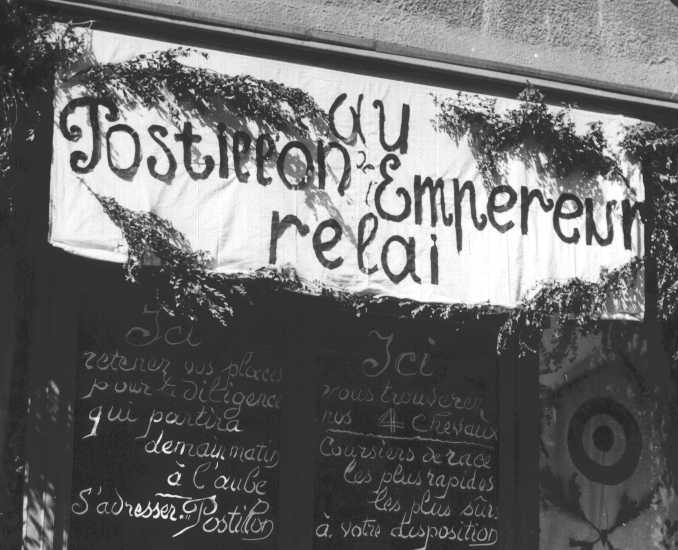 au
Postillon de l'Empereur
relai
Ici
retenez vos places
pour la diligence
qui partira
demain matin
à l'aube
S'adresser: Postillon
Ici
vous trouverez
nos 4 chevaux
Coursiers de race
les plus rapides
les plus sûrs
à votre disposition